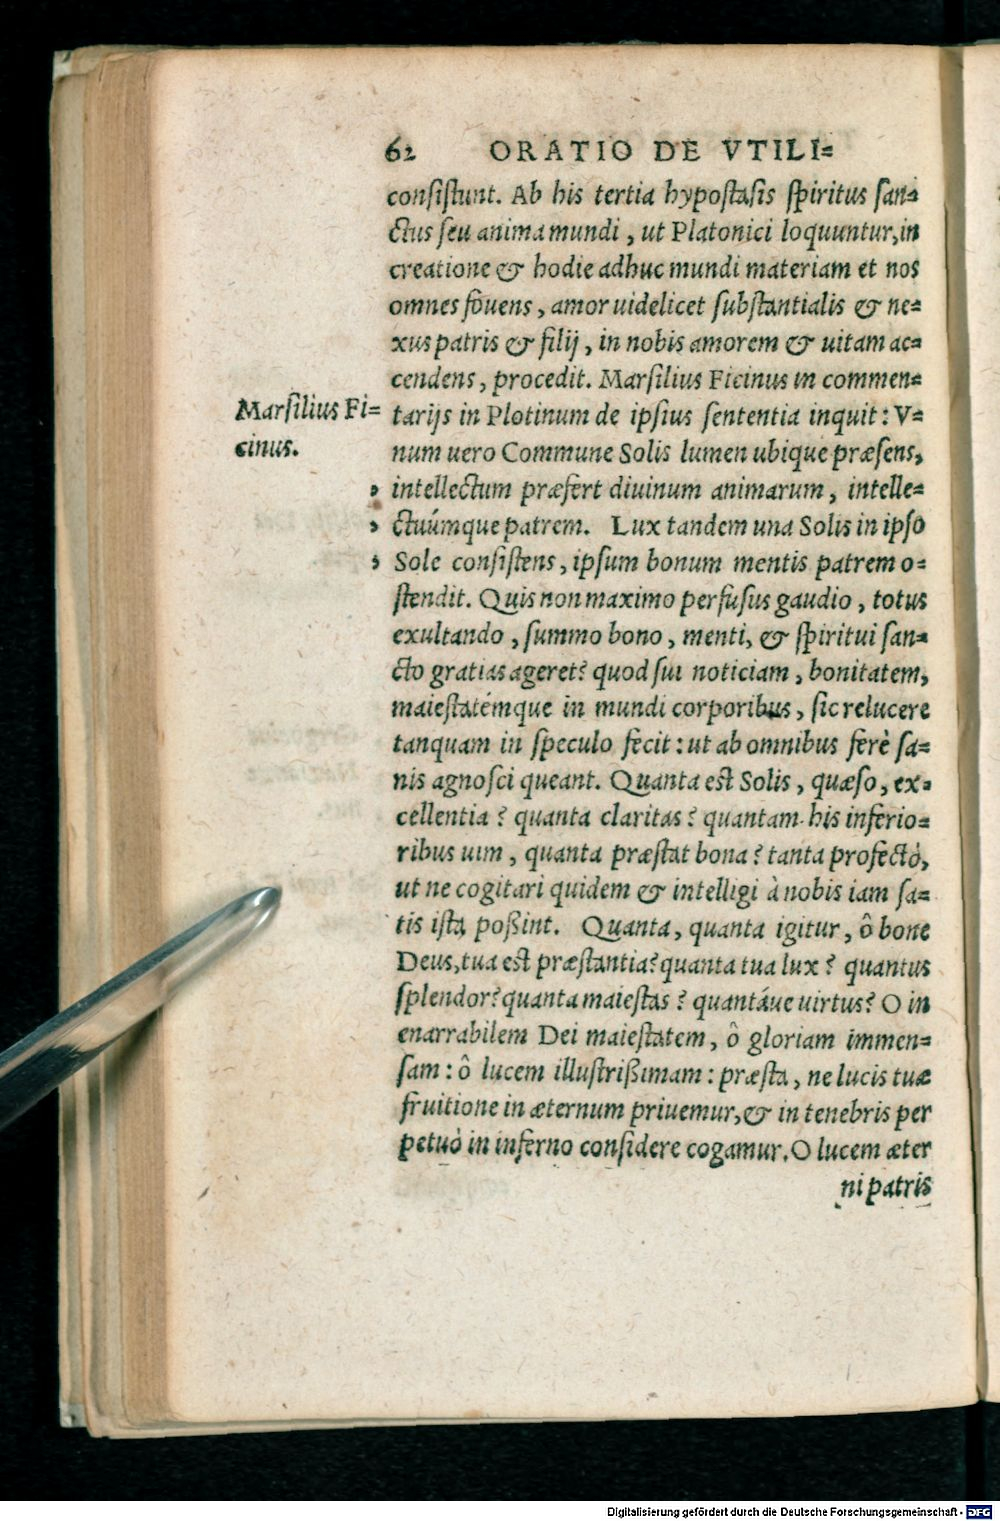 62 ORATIO DE VTILI=
consistunt. Ab his tertia hypostasis spiritus san=
ctus seu anima mundi, ut Platonici loquuntur, in
creatione & hodie adhuc mundi materiam et nos
omnes fovens, amor uidelicet substantialis & ne=
xus patris & filij, in nobis amorem & uitam ac=
cendens, procedit. Marsilius Ficinus in commen=
Marsilius Fi=
cinus.
tarijs in Plotinum de ipsius sententia inquit: V=
num uero Commune Solis lumen ubique præsens,
, intellectum præfert diuinum animarum, intelle=
, ctuúmque patrem. Lux tandem una Solis in ipso
, Sole consistens, ipsum bonum mentis patrem o=
stendit. Quis non maximo perfusus gaudio, totus
exultando, summo bono, menti, & spiritui san=
cto gratias ageret? quod sui noticiam, bonitatem,
maiestatémque in mundi corporibus, sic relucere
tanquam in speculo fecit: ut ab omnibus ferè sa=
nis agnosci queant. Quanta est Solis, quæso, ex=
cellentia? quanta claritas? quantam his inferio=
ribus uim, quanta præstat bona? tanta profectò,
ut ne cogitari quidem & intelligi à nobis iam sa=
tis ista poßint. Quanta, quanta igitur, ô bone
Deus, tua est præstantia? quanta tua lux? quantus
splendor? quanta maiestas? quantáue uirtus? O in
enarrabilem Dei maiestatem, ô gloriam immen=
sam: ô lucem illustrißimam: præsta, ne lucis tuæ
fruitione in æternum priuemur, & in tenebris per
petuò in inferno considere cogamur. O lucem æter
ni patris
Digitalisierung gefördert durch die Deutsche Forschungsgemeinschaft - DFG